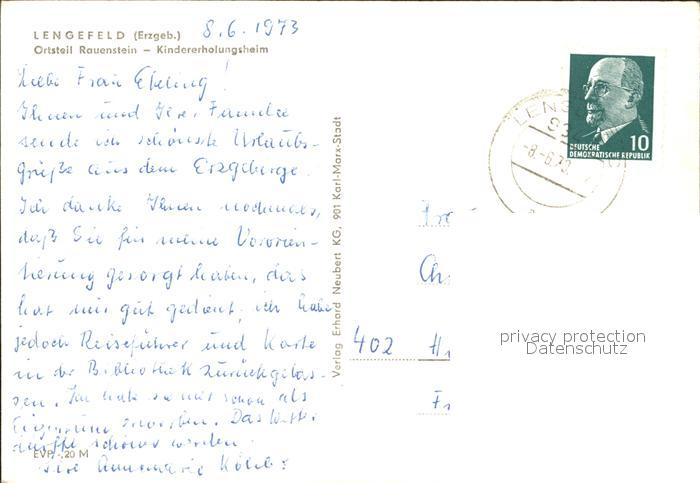 LENGEFELD (Erzgeb.) 8.6.1973
Ortsteil Rauenstein – Kindererholungsheim
Liebe Frau Ebeling!
Ihnen und Ihrer Familie
sende ich schönste Urlaubs-
grüße aus dem Erzgebirge.
Ich danke Ihnen nochmals,
daß Sie für meine Vororien-
tierung gesorgt haben, das
hat mir gut gedient, ich habe
jedoch Reiseführer und Karte
in der Bibliothek zurückgelas-
sen. Ich habe sie mir schon als
Eigentum erworben. Das Wetter
dürfte schöner werden.
Ihre Annemarie
EVP -,20 M
Verlag Erhard Neubert KG, 901 Karl-Marx-Stadt
LENG
-8.-6.73
10
DEUTSCHE
DEMOKRATISCHE REPUBLIK
402
privacy protection
Datenschutz